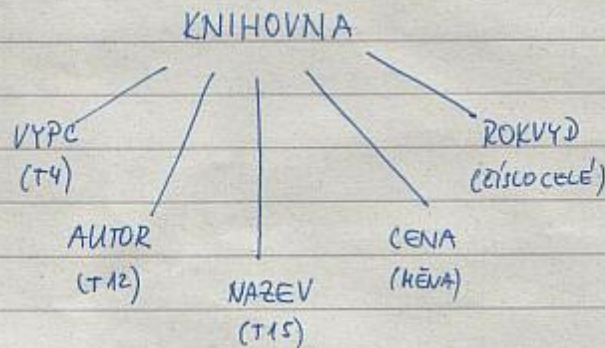 KNIHOVNA
VYPC
(T4)
AUTOR
(T12)
NAZEV
(T15)
CENA
(MĚNA)
ROKVYD
(ČÍSLO CELÉ)